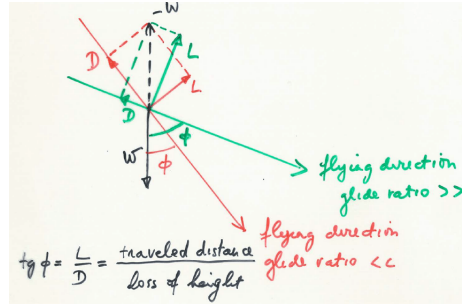 -W
D
L
L
D
ϕ
W
ϕ
flying direction
glide ratio >>
flying direction
glide ratio <<
tg ϕ = L/D = traveled distance / loss of height